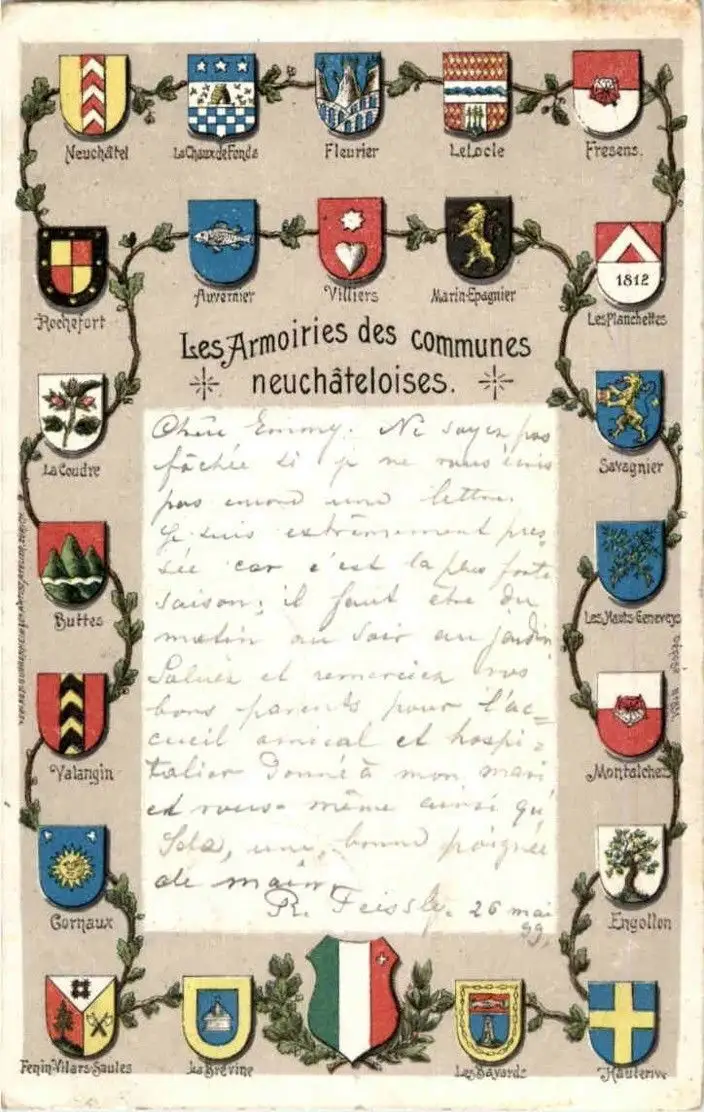 Neuchâtel
La Chaux de Fonds
Fleurier
Le Locle
Fresens.
Rochefort
Auvernier
Villiers
Marin-Epagnier
1812
Les Planchettes
Les Armoiries des communes
neuchâteloises.
La Coudre
Savagnier
Buttes
Les Hauts-Geneveys
Valangin
Montalchez
Cornaux
Engollon
Fenin-Vilars-Saules
La Brévine
Les Bayards
Hauterive
Chère Emmy. Ne soyez pas
fâchée si je ne vous écris
pas encore une lettre.
Je suis extrêmement pres-
sée car c'est la plus forte
saison; il faut être du
matin au soir au jardin
Saluez et remerciez vos
bons parents pour l'ac=
cueil amical et hospi=
talier donné à mon mari
et vous-même ainsi qu'
une bonne poignée
de main.
R. Feissly. 26 mai
99.